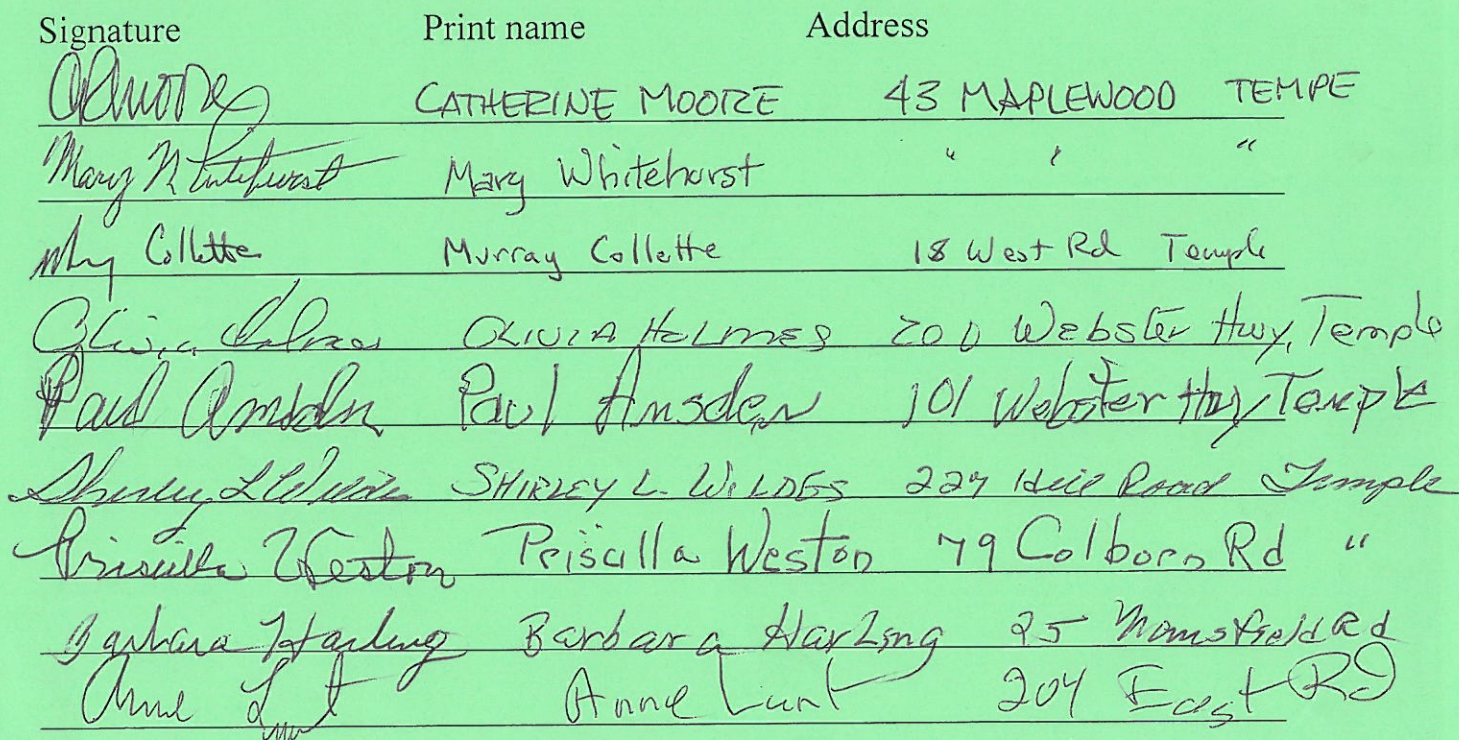 Signature Print name Address
CATHERINE MOORE 43 MAPLEWOOD TEMPE
Mary Whitehurst Mary Whitehurst " " "
Collette Murray Collette 18 West Rd Temple
Olivia Holmes OLIVIA HOLMES 200 Webster Hwy, Temple
Paul Amsden Paul Amsden 101 Webster Hwy Temple
Shirley L Wildes SHIRLEY L. WILDES 227 Hill Road Temple
Priscilla Weston Priscilla Weston 79 Colborn Rd "
Barbara Harling Barbara Harling 25 Mansfield Rd
Anne Lunt Anne Lunt 204 East Rd